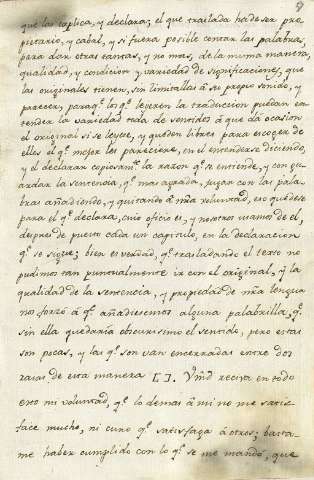 51
que las replica, y declara; el que traslada ha de ser pro
pietario, y cabal, y si fuera posible contar las palabras,
para dar otras tantas, y no mas, de la misma manera,
qualidad, y condicion y variedad de significaciones, que
las originales tienen, sin limitallas á su propio sonido, y
parecer, paraq.e los q.e leyeren la traduccion puedan en
tender la variedad toda de sentidos á que dá ocasion
el original si se leyese, y queden libres para escoger de
ellos el q.e mejor les pareciere, en el entenderse diciendo,
y el declarar copiosam.te la razon q.e se entiende, y con gu
ardar la sentencia, q.e mas agrada, jugar con las pala
bras añadiendo, y quitando á ñra voluntad, eso quedese
para el q.e declara, cuio oficio es, y nosotros usamos de el,
despues de puesto cada un capitulo, en la declaracion
q.e se sigue; bien es verdad, q.e trasladando el texto no
pudimos tan puntualmente ir con el original, y la
qualidad de la sentencia, y propiedad de ñra lengua
no forzó á q.e añadiesemos alguna palabrilla, q.e
sin ella quedaria obscurisimo el sentido, pero estas
son pocas, y las q.e son van encerradas entre dos
raias de esta manera [ ]. Vmd reciva en todo
esto mi voluntad, q.e lo demas á mi no me satis
face mucho, ni curo q.e satisfaga á otros; basta-
me haber cumplido con lo q.e se me mandó, que